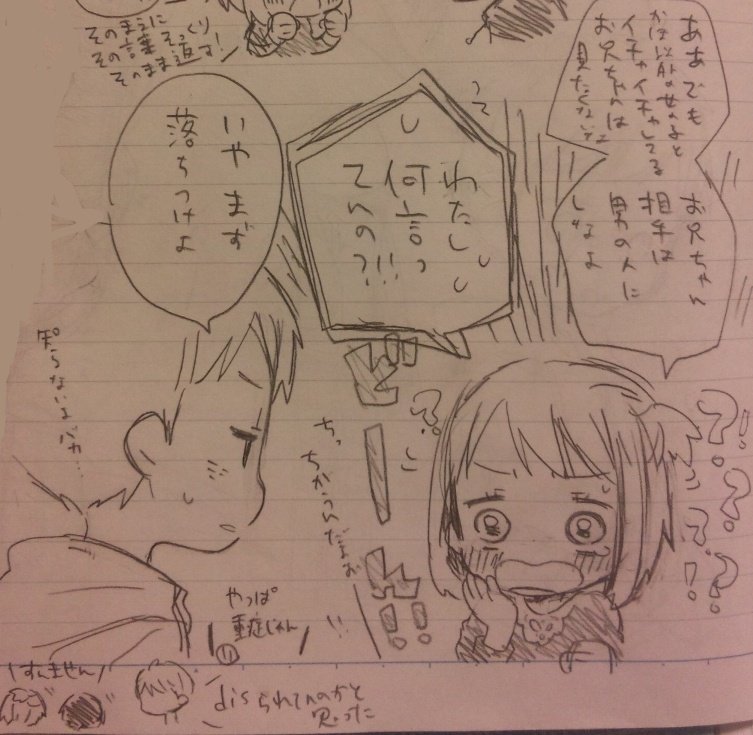 ああでも
かほ以外の女の子と
イチャイチャしてる
お兄ちゃんは
見たくないな
お兄ちゃん
相手は
男の人に
しなよ
そのまえに
その言葉そっくり
そのまま返す!
わたし
何言っ
てんの?!!
いやまず
落ちつけよ
知らないよバカ…
ちっ
ちがうんだよぉ
?!
?
?
?
!!
やっぱ
重症じゃん
!!
すんません
disられてんのかと
思った